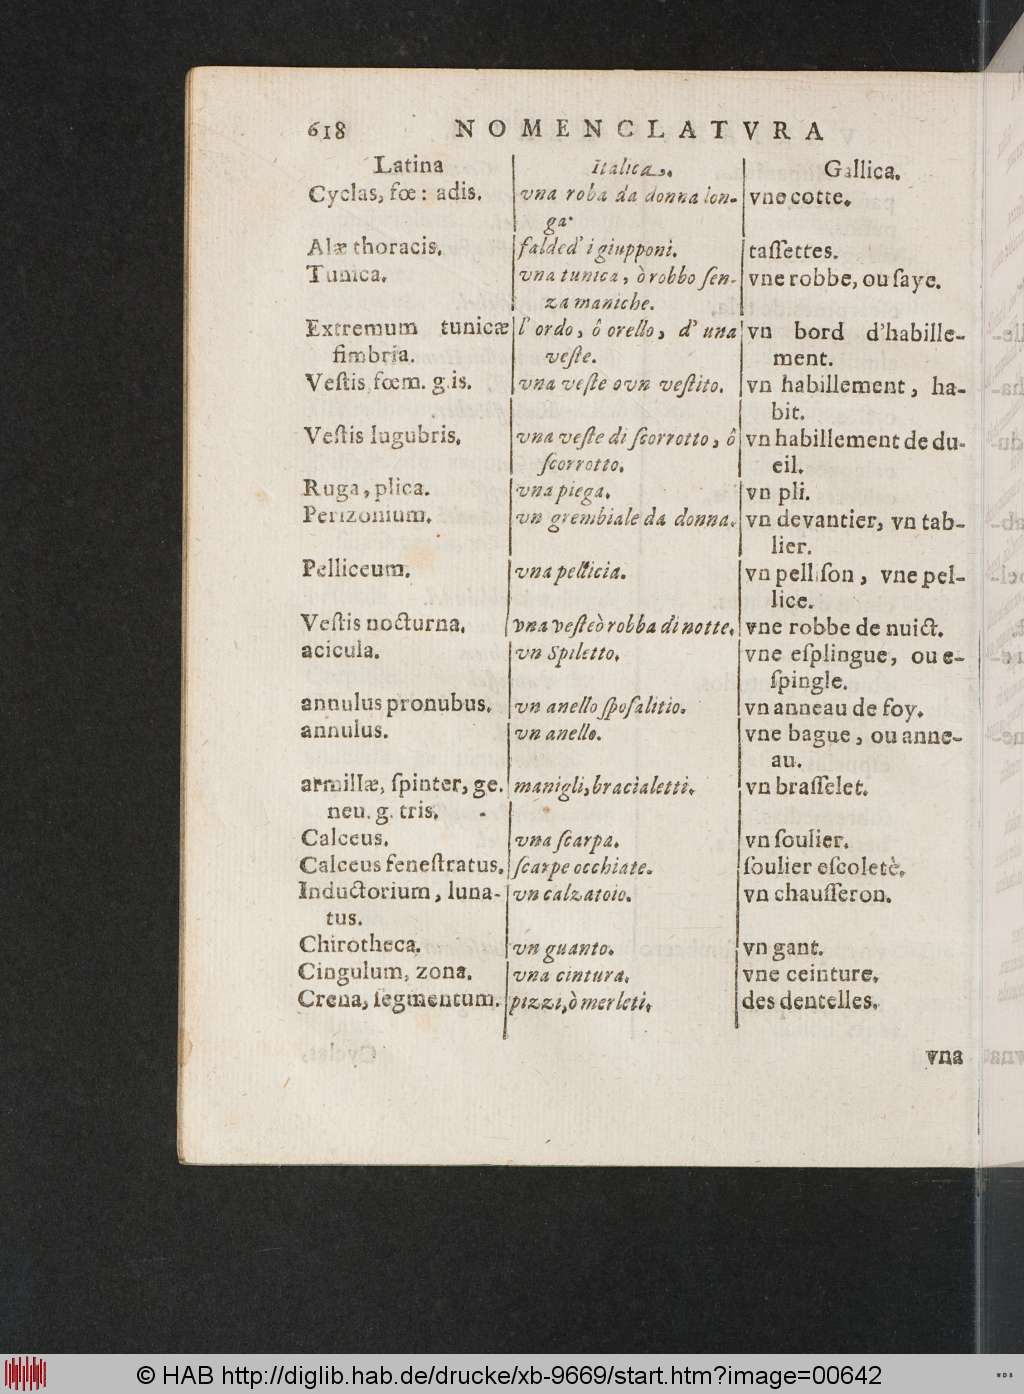 618 NOMENCLATVRA
Latina | Italica. | Gallica.
Cyclas, fœ: adis. | vna roba da donna lon- | vne cotte.
ga.
Alæ thoracis. | falded' i giupponi. | taſſettes.
Tunica. | vna tunica, ò robbo ſen- | vne robbe, ou ſaye.
za maniche.
Extremum tunicæ | l' ordo, ô orello, d' una | vn bord d'habille-
fimbria. | veſte. | ment.
Veſtis fœm. g.is. | vna veſte ovn veſtito. | vn habillement, ha-
bit.
Veſtis lugubris. | vna veſte di ſcorrotto, ô | vn habillement de du-
ſcorrotto. | eil.
Ruga, plica. | vna piega. | vn pli.
Perizonium. | vn grembiale da donna. | vn devantier, vn tab-
lier.
Pelliceum. | vna pellicia. | vn pelliſon, vne pel-
lice.
Veſtis nocturna. | vna veſteò robba di notte. | vne robbe de nuict.
acicula. | vn Spiletto. | vne eſplingue, ou e-
ſpingle.
annulus pronubus. | vn anello ſpoſalitio. | vn anneau de foy.
annulus. | vn anello. | vne bague, ou anne-
au.
armillæ, ſpinter, ge. | manigli, bracialetti. | vn braſſelet.
neu. g. tris.
Calceus. | vna ſcarpa. | vn ſoulier.
Calceus feneſtratus. | ſcarpe occhiate. | ſoulier eſcoletè.
Inductorium, luna- | vn calzatoio. | vn chauſſeron.
tus.
Chirotheca. | vn guanto. | vn gant.
Cingulum, zona. | vna cintura. | vne ceinture.
Crena, ſegmentum. | pizzi, ò merleti. | des dentelles.
vna
© HAB http://diglib.hab.de/drucke/xb-9669/start.htm?image=00642